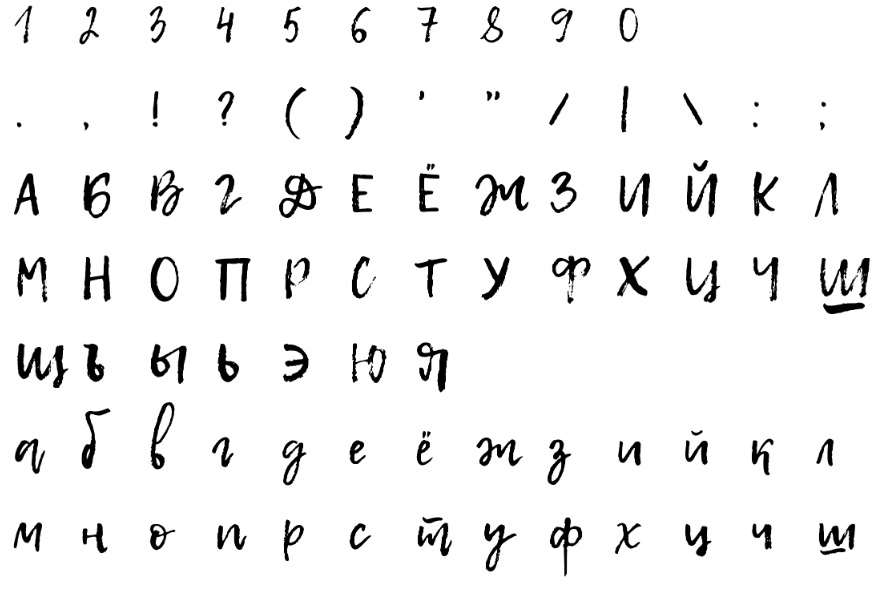 1 2 3 4 5 6 7 8 9 0
. , ! ? ( ) ' " / | \ : ;
А Б В Г Д Е Ё Ж З И Й К Л
М Н О П Р С Т У Ф Х Ц Ч Ш
Щ Ъ Ы Ь Э Ю Я
а б в г д е ё ж з и й к л
м н о п р с т у ф х ц ч ш